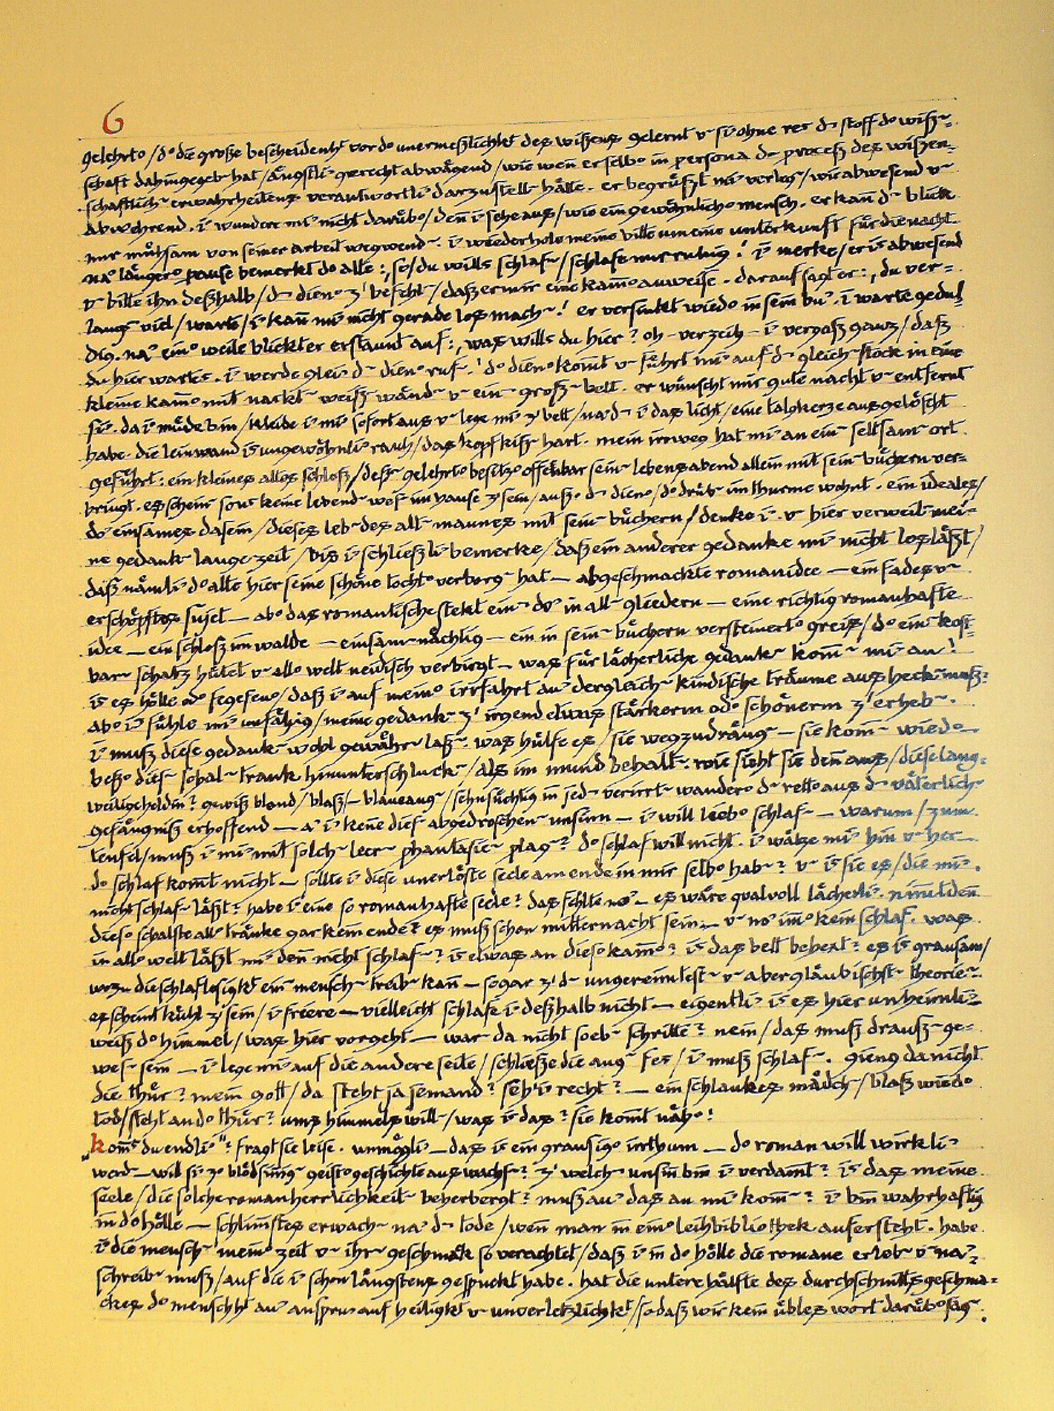 6
gelehrto / do die große bescheidenht vor do unermeszlichkt des wißens gelernt v si ohne rest d stoff do wißn-
schaft dahingegeb hat / ängstli gerecht abwägend / wie wen er selbo in persona d proceß des wißen-
schaftlich erwahrheitens verantwortli darzustell hätte. er begrüßt mi verleg / wie abwesend v
abwehrend. i wundere mi nicht darübo / den i sehe aus / wie ein gewöhnlicho mensch. er kan d blick
nur mühsam von seiner arbeit wegwend. i wiederholo meine bitte um eine unterkunft für die nacht.
na längero pause bemerkt do alte: so / du wills schlaf / schlafe nur ruhig! i merke / er is abwesend
v bitte ihn deßhalb / d dieno z' befehl / daß er mir eine kamo anweise. darauf sagt er: du ver-
langs viel / warte / i kan mi nicht gerade los mach! er versinkt wiedo in sein bu. i warte gedul
dig. na eino weile blickt er erstaunt auf: was wills du hier? oh - verzeih - i vergaß ganz / daß
du hier wartes. i werde glei d dieno ruf. do dieno komt v führt mi auf d gleich stock in eine
kleine kamo mit nackt weiß wänd v ein groß bett. er wünscht mir gute nacht v entfernt
si. da i müde bin / kleide i mi sofort aus v lege mi z' bett / na d i das licht / eine talgkerze ausgelöscht
habe. die leinwand is ungewöhnli rauh / das kopfkiß hart. mein irrweg hat mi an ein seltsam ort
geführt: ein kleines altes schloß / deß gelehrto besitzo offenbar sein lebensabend allein mit sein büchern ver-
bringt. es schein sons keine lebend wes im hause z' sein / auß d dieno / do drüb im thurme wohnt. ein ideales /
do einsames dasein / dieses leb des alt mannes mit sein büchern / denke i. v hier verweil mei-
ne gedank lange zeit / bis i schließli bemerke / daß ein anderer gedanke mi nicht losläßt /
daß nämli do alte hier seine schöne tochto verborg hat — abgeschmackte romanidee — ein fades v
erschöpftes sujet — abo das romantische stekt ein do in all gliedern — eine richtig romanhafte
idee — ein schloß im walde — einsam nächtig — ein in sein büchern versteinerto greis / do ein kost-
bar schatz hütet v allo welt neidisch verbirgt — was für lächerliche gedank kom mi an!
is es hölle odo fegefeuo / daß i auf meino irrfahrt au dergleich kindische träume aushecken muß?
abo i fühle mi unfähig / meine gedank z' irgend etwas stärkerm odo schönerm z' erheb.
i muß diese gedank wohl gewähr laß. was hülfe es / sie wegzudräng — sie kom wiedo —
beßo dies schal trank hinunterschluck / als im mund behalt. wie sieht sie den aus / diese lang-
weilige holdin? gewiß blond / blaß — blaueaug / sehnsüchtig in jed verirrt wandero d retto aus d väterlich
gefängniß erhoffend — a i kene dies abgedroschen unsinn — i will liebo schlaf — warum / zum
teufel / muß i mi mit solch leer phantasie plag? do schlaf will nicht. i wälze mi hin v her —
do schlaf komt nicht — sollte i diese unerlöste seele am ende in mir selbo hab? v is sie es / die mi
nicht schlaf läßt? habe i eine so romanhafte seele? das fehlte no — es wäre qualvoll lächerli. nimt den
dieso schalste allo tränke gar kein ende? es muß schon mitternacht sein — v no imo kein schlaf. was
in allo welt läßt mi den nicht schlaf? is etwas an dieso kamo? is das bett behext? es is grausam /
wozu die schlaflosigkt ein mensch treib kan — sogar z' d ungereimtest v abergläubischst theorie.
es scheint kühl z' sein / i friere — vielleicht schlafe i deßhalb nicht — eigentli is es hier unheimli —
weiß do himmel / was hier vorgeht — war da nicht soeb schritte? nein / das muß drauß ge-
wes sein — i lege mi auf die andere seite / schließe die aug fes / i muß schlaf. gieng da nicht
die thür? mein gott / da steht ja jemand! seh i recht? — ein schlankes mädch / blaß wie do
tod / steht an do thür? ums himmels will / was is das? sie komt näho!
„koms du endli"? fragt sie leise. unmögli — das is ein grausigo irrthum — do roman will wirkli
werd — will si zo blödsinnig geistogeschichte auswachs? z' welch unsin bin i verdamt? is das meine
seele / die solche romanherrlichkeit beherbergt? muß au das an mi kom? i bin wahrhaftig
in do hölle — schlimstes erwach na d tode / wen man in eino leihbibliothek aufersteht. habe
i die mensch meino zeit v ihr geschmak so verachtet / daß i in do hölle die romane erleb v na-
schreib muß / auf die i schon längstens gespuckt habe. hat die untere hälfte des durchschnittsgeschma-
ckes do menschht au anspruz auf heiligkt v unverletzlichkt / so daß wir kein übles wort darübo sag